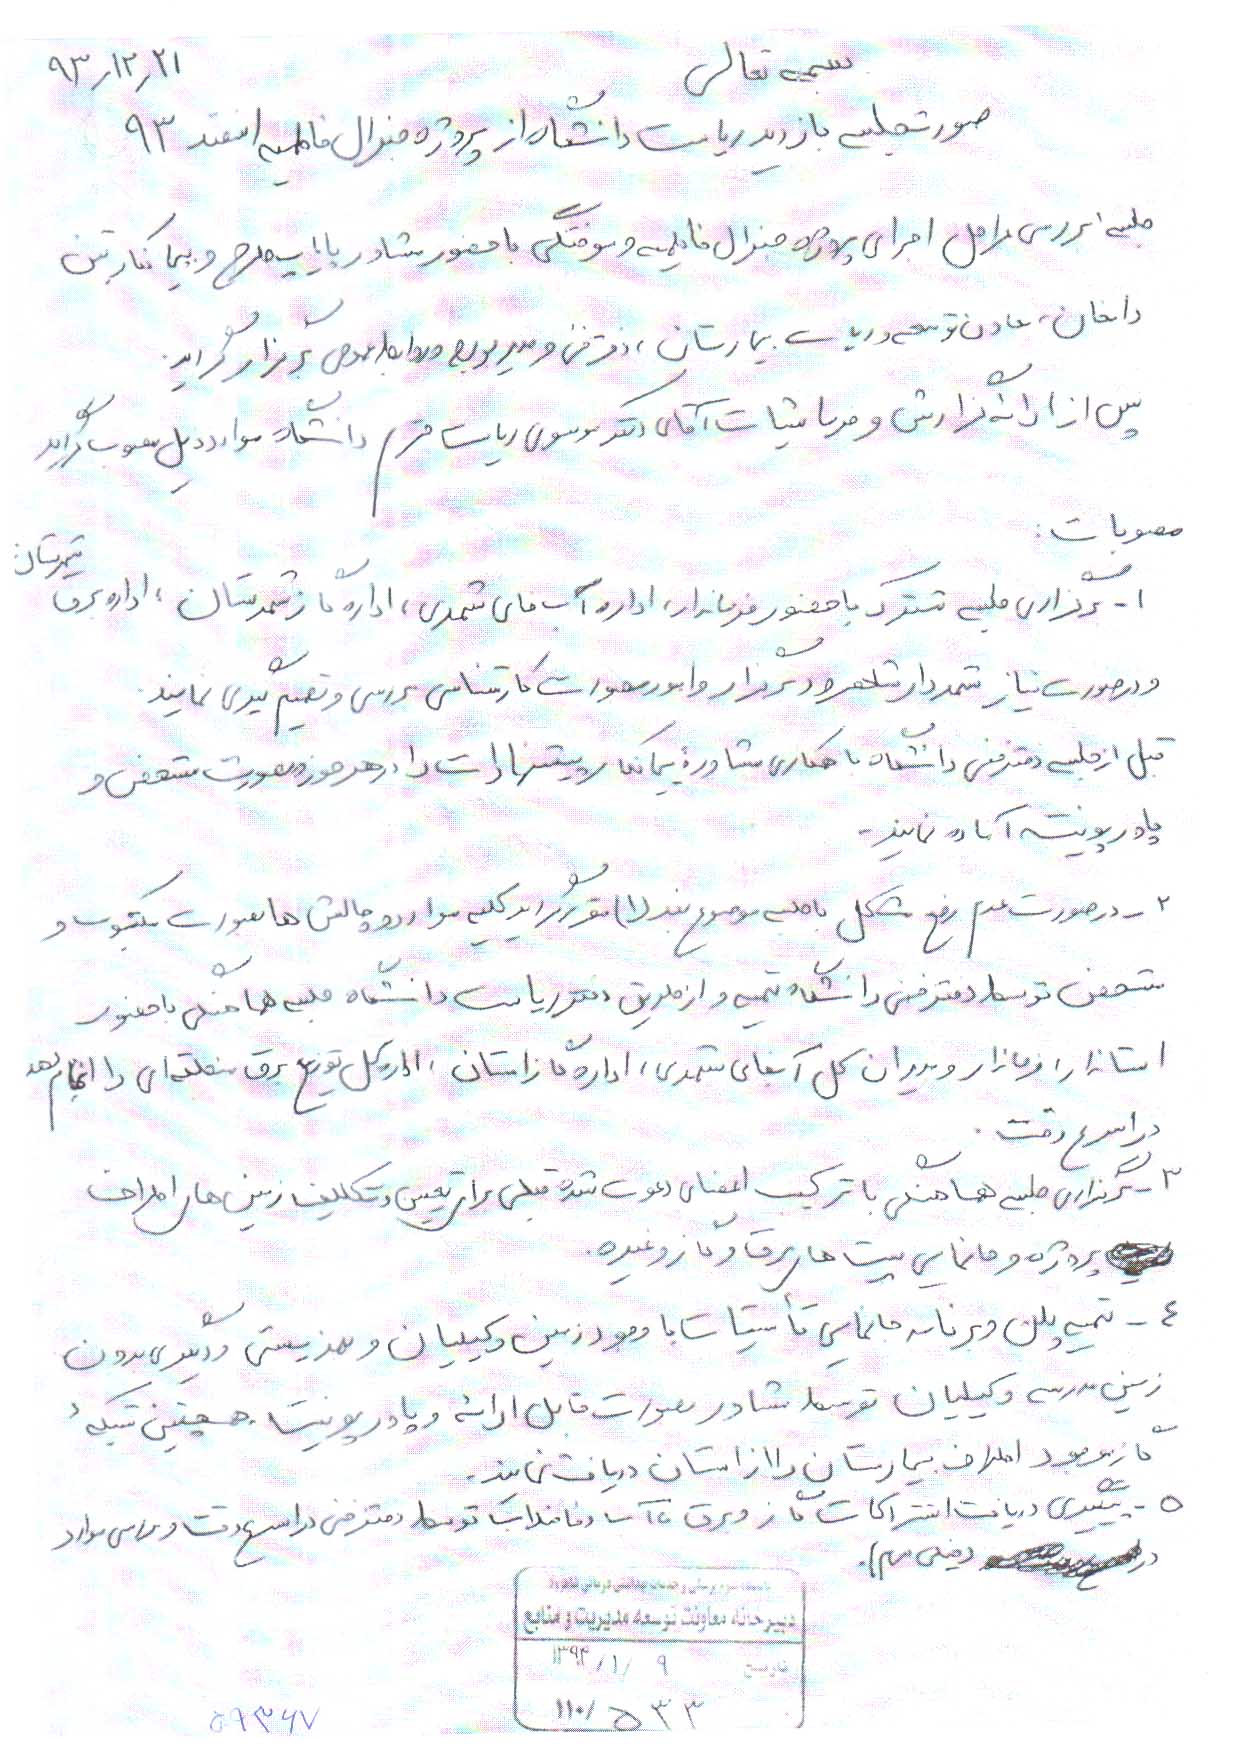 بسمه تعالی
۹۳٫۱۲٫۲۱
صورتجلسه بازدید ریاست دانشگاه از پروژه جنرال فاطمیه اسفند ۹۳
جلسه بررسی مراحل اجرای پروژه جنرال فاطمیه و سوختگی با حضور مشاور طرح و پیمانکار
دامغان، معاون توسعه و ریاست بیمارستان، دفتر فنی و مدیر و روابط عمومی برگزار گردید.
پس از ارائه گزارش و فرمایشات آقای دکتر موسوی ریاست محترم دانشگاه موارد ذیل مصوب گردید
مصوبات:
۱- برگزاری جلسه مشترک با حضور فرماندار، اداره آب های شهری، اداره گاز شهرستان، اداره برق شهرستان
و در صورت نیاز شهردار برگزار و امور بصورت کارشناسی بررسی و تصمیم گیری نمایند.
قبل از جلسه دفتر فنی دانشگاه با همکاری مشاور و پیمانکار پیشنهادات را در هر حوزه بصورت مشخص و
پاورپوینت آماده نمایند.
۲- در صورت عدم رفع مشکل با جلسه موضوع بند (۱) مقرر گردید کلیه موارد و چالش ها بصورت مکتوب و
مشخص توسط دفتر فنی دانشگاه تهیه و از طریق دفتر ریاست دانشگاه جلسه هماهنگی با حضور
استاندار، فرماندار و مدیران کل آبفای شهری، اداره گاز استان، اداره کل توزیع برق منطقه ای را انجام دهد
در اسرع وقت.
۳- برگزاری جلسه هماهنگی با ترکیب اعضای دعوت شده قبلی برای تعیین تکلیف زمین های اطراف
پروژه و جانمایی پست های برق و گاز و غیره.
٤- تهیه پلان و برنامه جانمایی تأسیسات با وجود زمین وکیلیان و بهزیستی و دیگری بدون
زمین مدرسه وکیلیان توسط مشاور بصورت قابل ارائه و پاورپوینت. همچنین شبکه
گاز موجود اطراف بیمارستان را از استان دریافت نمایند.
۵- پیگیری دریافت اشتراکات گاز و برق و آب و فاضلاب توسط دفتر فنی در اسرع وقت و بررسی موارد
در
دبیرخانه معاونت توسعه مدیریت و منابع
تاریخ ۱۳۹۴/۱/۹
۱۱۰/۵۳۳
۵۹۳۶۷